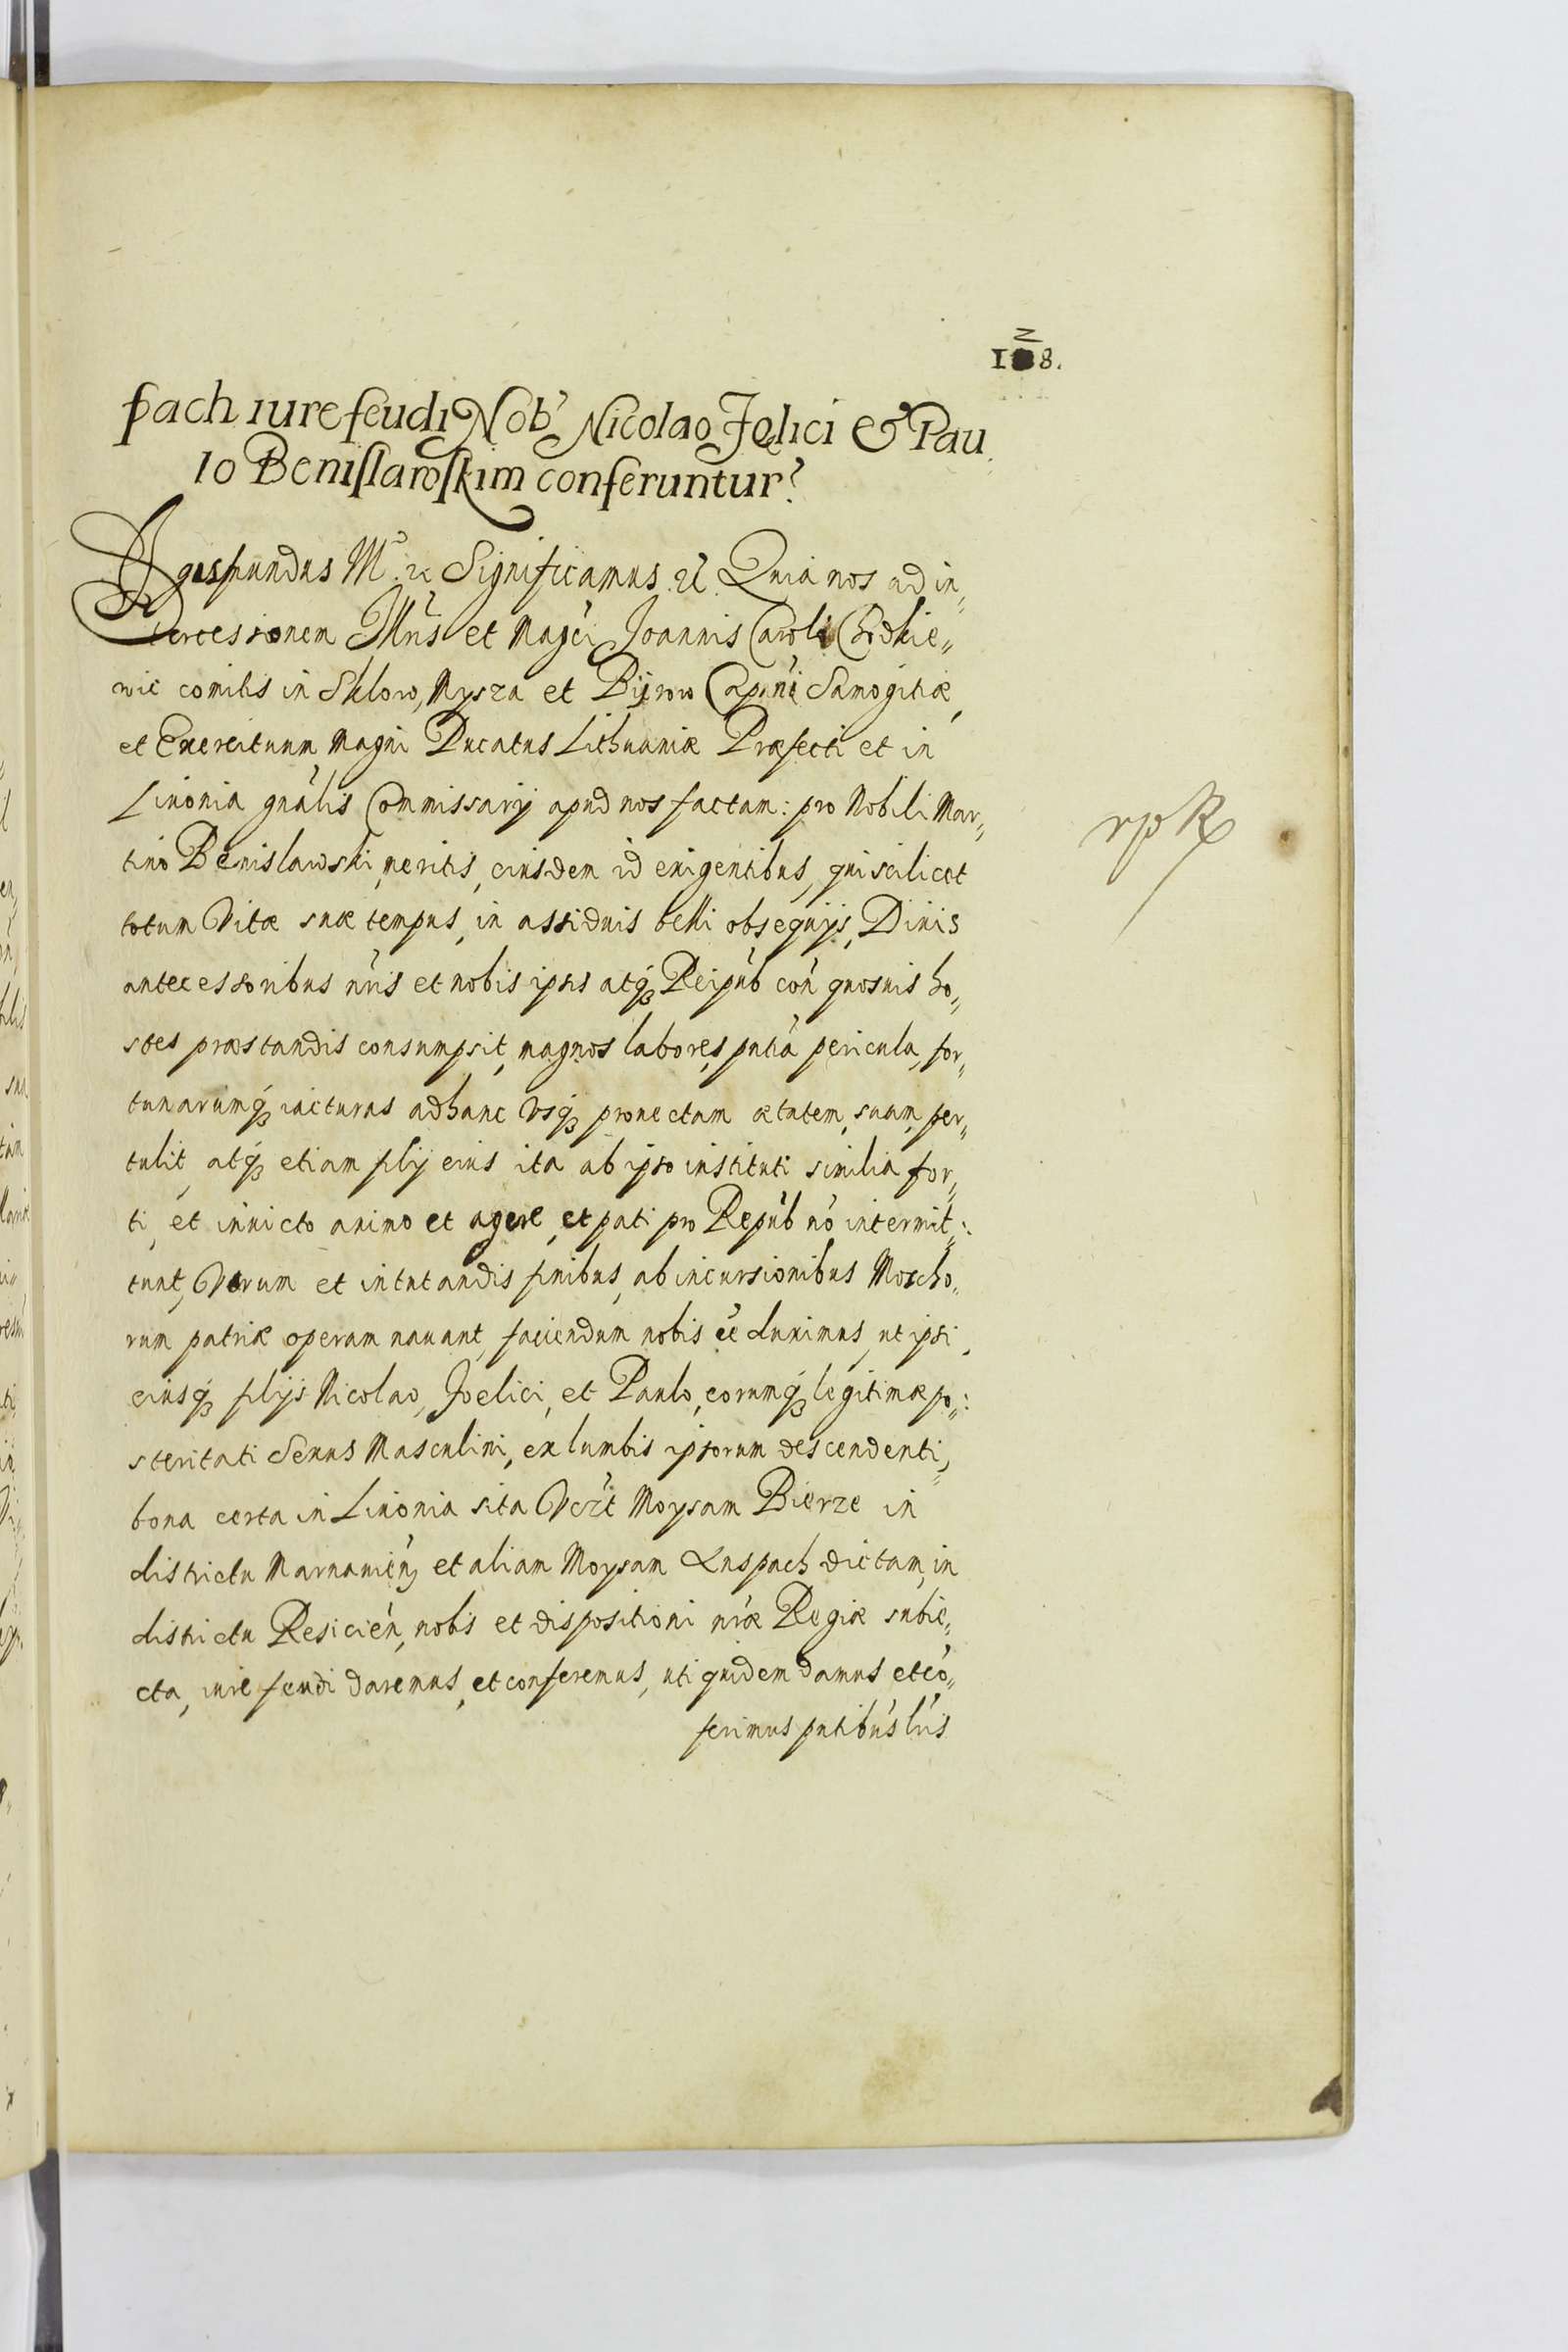 128.
spach iure feudi Nob' Nicolao Joelici & Pau
lo Benislawskim conferuntur.
Sigismundus M. etc Significamus etc. Quia nos ad in„
tercessionem Illris et Magci Joannis Caroli Chodkie„
wic comitis in Shlow, Mysza et Bijxow Capnei Samogitiæ,
et Exercituum Magni Ducatus Lithuaniæ Præfecti et in
Liuonia gnãlis Commissarij apud nos factam: pro Nobili Mar„
tino Benislawski, meritis, eiusdem id exigentibus, qui scilicet
totum Vitæ suæ tempus, in assiduis belli obsequijs, Diuis
antecessoribus nris et nobis ipsis atq; Reipub con quosuis ho„
stes præstandis consumpsit, magnos labores, pntia pericula, for„
tunarumq; iacturas ad hanc Vsq; prouectam ætatem, suam, per„
tulit, atq; etiam filij eius ita ab ipso instituti similia for„
ti, et inuicto animo et agere, et pati pro Repub nõ intermit„
tunt, Verum et in tutandis finibus, ab incursionibus Moscho„
rum patriæ operam nauant, faciendum nobis eẽ duximus, ut ipsi,
eiusq; filijs Nicolao, Joelici, et Paulo, eorumq; legitimæ po„
steritati Sexus Masculini, ex lumbis ipsorum descendenti,
bona certa in Liuonia sita Vczt Moysam Bierze in
districtu Marnauien, et aliam Moysam Luspach dictam, in
districtu Resicien, nobis et dispositioni nræ Regiæ subie„
cta, iure feudi daremus, et conferemus, uti quidem damus et cõ„
ferimus pntibus lris